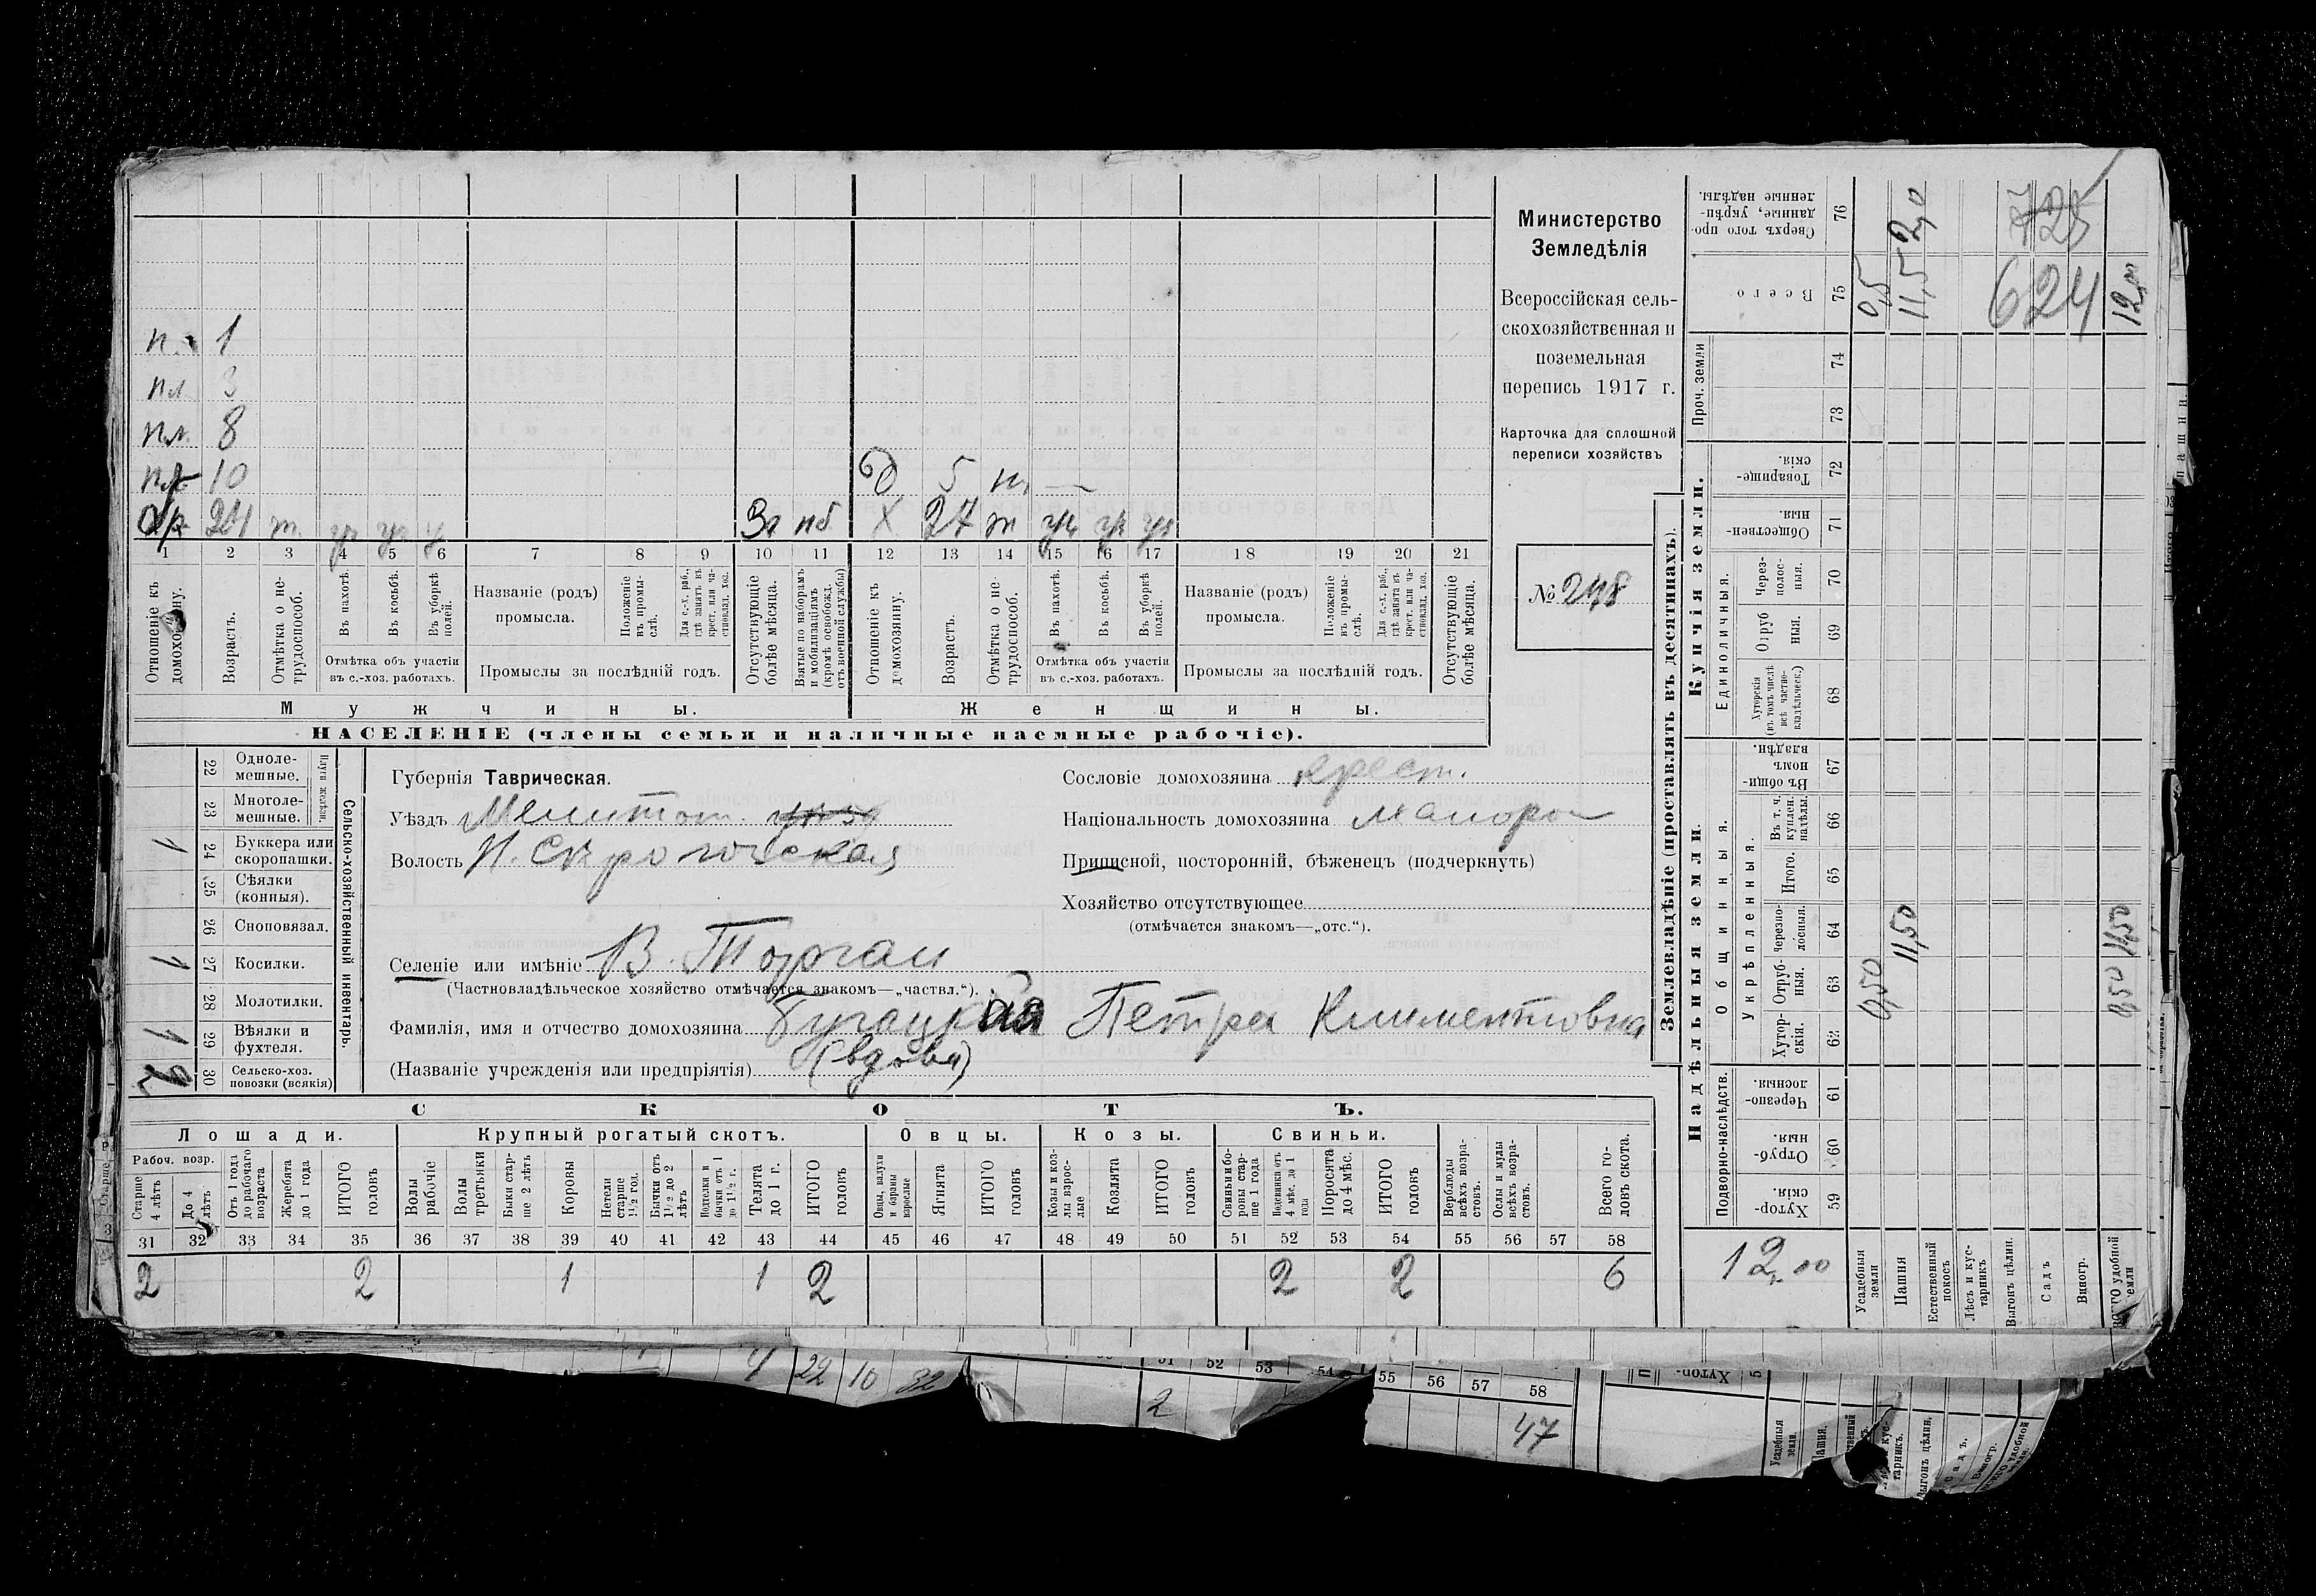 п. 1
пл. 3
пл. 8
пл. 10 д 5 п. —
бр. 24 т. ул ул у За пб Х 27 т ул ул ул
1 2 3 4 5 6 7 8 9 10 11 12 13 14 15 16 17 18 19 20 21
Отношеніе къ домохозяину.
Возрастъ.
Отмѣтка о нетрудоспособ.
Въ пахотѣ.
Въ косьбѣ.
Въ уборкѣ полей.
Отмѣтка объ участіи въ с.-хоз. работахъ.
Названіе (родъ) промысла.
Положеніе въ промыслѣ.
Для с.-х. раб., гдѣ занятъ въ крест. или частновлад. хоз.
Промыслы за послѣдній годъ.
Отсутствующіе болѣе мѣсяца.
Взятые по наборамъ и мобилизаціямъ (кромѣ освобожд. отъ военной службы)
Отношеніе къ домохозяину.
Возрастъ.
Отмѣтка о нетрудоспособ.
Въ пахотѣ.
Въ косьбѣ.
Въ уборкѣ полей.
Отмѣтка объ участіи въ с.-хоз. работахъ.
Названіе (родъ) промысла.
Положеніе въ промыслѣ.
Для с.-х. раб., гдѣ занята въ крест. или частновлад. хоз.
Промыслы за послѣдній годъ.
Отсутствующіе болѣе мѣсяца.
Мужчины. Женщины.
НАСЕЛЕНІЕ (члены семьи и наличные наемные рабочіе).
Министерство
Земледѣлія
Всероссійская сель-
скохозяйственная и
поземельная
перепись 1917 г.
Карточка для сплошной
переписи хозяйствъ
№ 248
Сельско-хозяйственный инвентарь.
Плуги желѣзн.
22 Одноле-
мешные.
23 Многоле-
мешные.
1 24 Буккера или
скоропашки.
25 Сѣялки
(конныя).
26 Сноповязал.
1 27 Косилки.
28 Молотилки.
1 29 Вѣялки и
фухтеля.
2 30 Сельско-хоз.
повозки (всякія)
Губернія Таврическая.
Уѣздъ Мелитоп.
Волость Н. Сѣрогозская
Селеніе или имѣніе В. Торгаи
(Частновладѣльческое хозяйство отмѣчается знакомъ—„частвл.“).
Фамилія, имя и отчество домохозяина Бугацкая Петра Климентовна
(вдова)
(Названіе учрежденія или предпріятія)
Сословіе домохозяина крест.
Національность домохозяина малорос
Приписной, посторонній, бѣженецъ (подчеркнуть)
Хозяйство отсутствующее
(отмѣчается знакомъ—„отс.“).
СКОТЪ.
Лошади. Крупный рогатый скотъ. Овцы. Козы. Свиньи.
Рабоч. возр.
Старше 4 лѣтъ
До 4 лѣтъ
Отъ 1 года до рабочаго возраста
Жеребята до 1 года
ИТОГО головъ
Волы рабочіе
Волы третьяки
Быки старше 2 лѣтъ
Коровы
Нетели старше 1½ год.
Бычки отъ 1½ до 2 лѣтъ
Подтелки и бычки отъ 1 до 1½ г.
Телята до 1 г.
ИТОГО головъ
Овцы, валухи и бараны взрослые
Ягнята
ИТОГО головъ
Козы и козлы взрослые
Козлята
ИТОГО головъ
Свиньи и боровы старше 1 года
Подсвинки отъ 4 мѣс. до 1 года
Поросята до 4 мѣс.
ИТОГО головъ
Верблюды всѣхъ возрастовъ.
Ослы и мулы всѣхъ возрастовъ.
Всего головъ скота.
31 32 33 34 35 36 37 38 39 40 41 42 43 44 45 46 47 48 49 50 51 52 53 54 55 56 57 58
2 2 1 1 2 2 2 6
Землевладѣніе (проставлять въ десятинахъ).
Надѣльныя земли. Купчія земли.
Подворно-наслѣдств.
Общинныя.
Укрѣпленныя.
Единоличныя.
Проч. земли
Хутор-
скія. 59
Отруб-
ныя. 60
Черезпо-
лосныя 61
Хутор-
скія. 62
Отруб-
ныя. 63
Черезпо-
лосныя. 64
Итого. 65
Въ т. ч. куплен. надѣлы. 66
Въ общи-
номъ
владѣн. 67
Хуторскія (въ томъ числѣ всѣ частновладѣльческ.) 68
Отруб
ныя. 69
Через-
полос-
ныя. 70
Обществен-
ныя. 71
Товарище-
скія. 72
73
74
Всего 75
Сверхъ того про-
данные, укрѣп-
ленные надѣлы. 76
12,00
Усадебныя земли
Пашня
Естественный покосъ
Лѣсъ и кустарникъ
Выгонъ цѣлин.
Садъ
Виногр.
Всего удобной земли
0,50
11,50
0,50 11,50
0,5
11,5
2,0
725
624
12,00
4 22 10 32
51 52 53 54 55 56 57 58
2
47
Усадебныя земли.
Пашня.
тарникъ.
Выгонъ цѣлин.
Садъ.
Виногр.